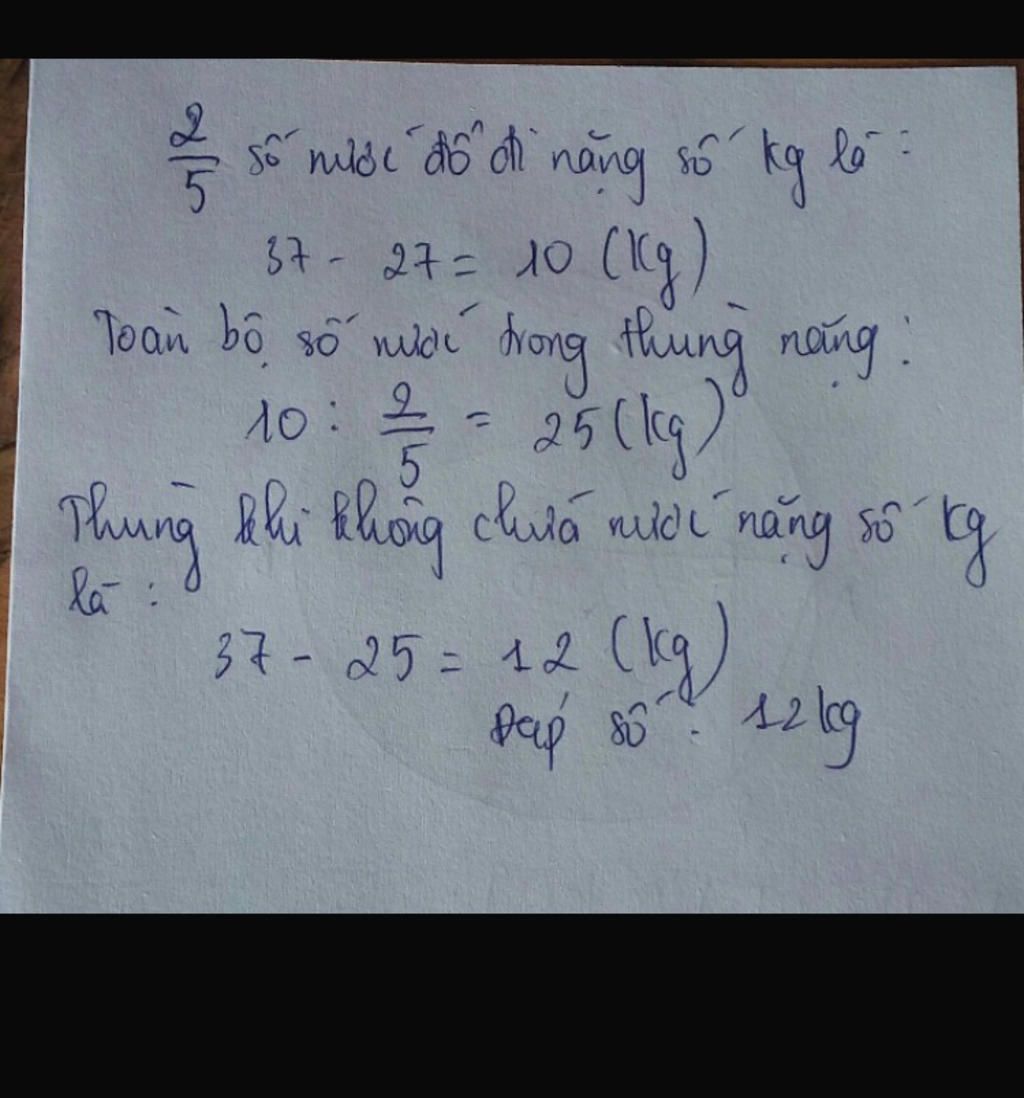 2/5 số nước đổ đi nặng số kg là:
37 - 27 = 10 (kg)
Toàn bộ số nước trong thùng nặng:
10 : 2/5 = 25 (kg)
Thùng khi không chứa nước nặng số kg
là:
37 - 25 = 12 (kg)
Đáp số: 12 kg